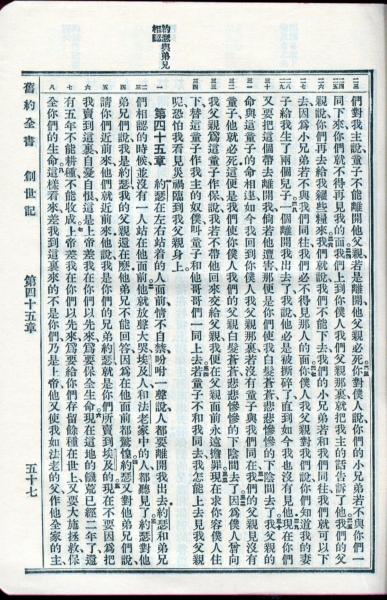 約瑟與弟兄
相認
們對我主說童子不能離開他父親若是離開他父親必死你對僕人說你們的小兄弟若不與你們一
同下來你們就不得再見我的面我們上到你僕人我們父親那裏就把我主的話告訴了他我們的父
親說你們再去給我糴些糧來我們就說我們不能下去我們的小兄弟若和我們同往我們就可以下
去因爲小兄弟若不與我們同往我們必不得見那人的面你僕人我父親對我們說你們知道我的妻
子給我生了兩個兒子一個離開我出去了我說他必是被撕碎了直到如今我也沒有見他現在你們
又要把這個帶去離開我倘若他遭害那便是你們使我白髮蒼蒼悲悲慘慘的下陰間去了我父親的
命與這童子的命相連如今我回到你僕人我父親那裏若沒有童子與我們同在我們的父親見沒有
童子他就必死這便是我們使你僕人我們的父親白髮蒼蒼悲悲慘慘的下陰間去了因爲僕人曾向
我父親爲這童子作保說我若不帶他回來交給父親我便在父親面前永遠擔罪現在求你容僕人住
下替這童子作我主的奴僕叫童子和他哥哥們一同上去若童子不和我同去我怎能上去見我父親
呢恐怕我看見災禍臨到我父親身上
一 第四十五章 約瑟在左右站着的人面前情不自禁吩咐一聲說人都要離開我出去約瑟和弟兄
二 們相認的時候並沒有一人站在他面前他就放聲大哭埃及人和法老家中的人都聽見了約瑟對他
三四 弟兄們說我是約瑟我的父親還在麽他弟兄不能回答因爲在他面前都驚惶約瑟又對他弟兄們說
五 請你們近前來他們就近前來他說我是你們的兄弟約瑟就是你們所賣到埃及的現在不要因爲把
六 我賣到這裏自憂自恨這是上帝差我在你們以先來爲要保全生命現在這地的饑荒已經二年了還
七 有五年不能耕種不能收成上帝差我在你們以先來爲要給你們存留餘種在世上又要大施拯救保
八 全你們的生命這樣看來差我到這裏來的不是你們乃是上帝他又使我如法老的父作他全家的主
舊約全書 創世記 第四十五章 五十七